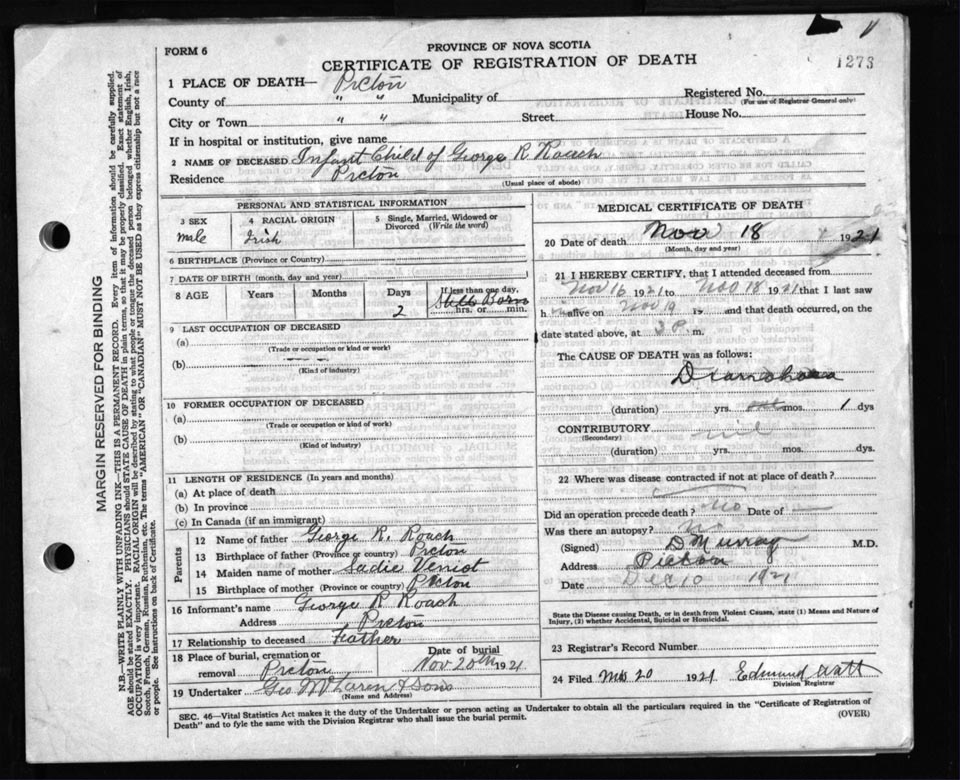 FORM 6
PROVINCE OF NOVA SCOTIA
CERTIFICATE OF REGISTRATION OF DEATH
1273
1 PLACE OF DEATH— Pictou
County of " " Municipality of Registered No.
(For use of Registrar General only)
City or Town " " Street House No.
If in hospital or institution, give name
2 NAME OF DECEASED Infant Child of George R. Roach
Residence Pictou
(Usual place of abode)
MARGIN RESERVED FOR BINDING
N.B.—WRITE PLAINLY WITH UNFADING INK—THIS IS A PERMANENT RECORD. Every item of information should be carefully supplied.
AGE should be stated EXACTLY. PHYSICIANS should STATE CAUSE OF DEATH in plain terms, so that it may be properly classified. Exact statement of
OCCUPATION is very important. RACIAL ORIGIN will be described by stating to what people or tongue the deceased person belonged whether English, Irish,
Scotch, French, German, Russian, Ruthenian, etc. The terms "AMERICAN" OR "CANADIAN" MUST NOT BE USED as they express citizenship but not a race
or people. See instructions on back of Certificate.
PERSONAL AND STATISTICAL INFORMATION
3 SEX
male
4 RACIAL ORIGIN
Irish
5 Single, Married, Widowed or
Divorced (Write the word)
6 BIRTHPLACE (Province or Country)
7 DATE OF BIRTH (month, day and year)
8 AGE Years Months Days If less than one day,
2 Still Born
hrs. or min.
9 LAST OCCUPATION OF DECEASED
(a)
(Trade or occupation or kind or work)
(b)
(Kind of industry)
10 FORMER OCCUPATION OF DECEASED
(a)
(Trade or occupation or kind of work)
(b)
(Kind of industry)
11 LENGTH OF RESIDENCE (In years and months)
(a) At place of death
(b) In province
(c) In Canada (if an immigrant)
Parents
12 Name of father George R. Roach
13 Birthplace of father (Province or country) Pictou
14 Maiden name of mother Sadie Veniot
15 Birthplace of mother (Province or country) Pictou
16 Informant's name George R Roach
Address Pictou
17 Relationship to deceased Father
18 Place of burial, cremation or
removal Pictou
Date of burial
Nov 20th 1921
19 Undertaker Geo McLaren & Sons
(Name and Address)
MEDICAL CERTIFICATE OF DEATH
20 Date of death Nov 18 1921
(Month, day and year)
21 I HEREBY CERTIFY, that I attended deceased from
Nov 16 1921 to Nov 18 1921 that I last saw
h im alive on Nov 19 and that death occurred, on
date stated above, at 3 P. m.
The CAUSE OF DEATH was as follows:
(duration) yrs. mos. 1 dys
CONTRIBUTORY nil
(Secondary)
(duration) yrs. mos. dys.
22 Where was disease contracted if not at place of death?
Did an operation precede death? No Date of —
Was there an autopsy? no
(Signed) D Murray M.D.
Address Pictou
Date Dec 10 1921
State the Disease causing Death, or in death from Violent Causes, state (1) Means and Nature of
Injury, (2) whether Accidental, Suicidal or Homicidal.
23 Registrar's Record Number
24 Filed 20 1921 Edmund Watt
Division Registrar
SEC. 46—Vital Statistics Act makes it the duty of the Undertaker or person acting as Undertaker to obtain all the particulars required in the "Certificate of Registration of
Death" and to fyle the same with the Division Registrar who shall issue the burial permit.
(OVER)